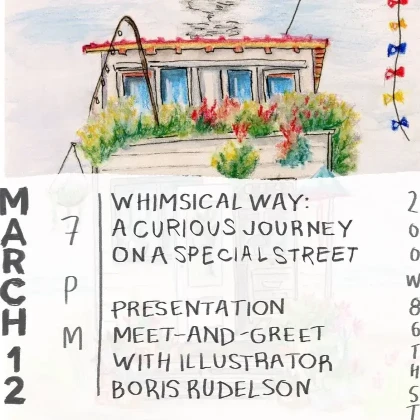 MARCH 12
7 PM
WHIMSICAL WAY:
A CURIOUS JOURNEY
ON A SPECIAL STREET
PRESENTATION
MEET-AND-GREET
WITH ILLUSTRATOR
BORIS RUDELSON
200 W 86TH ST